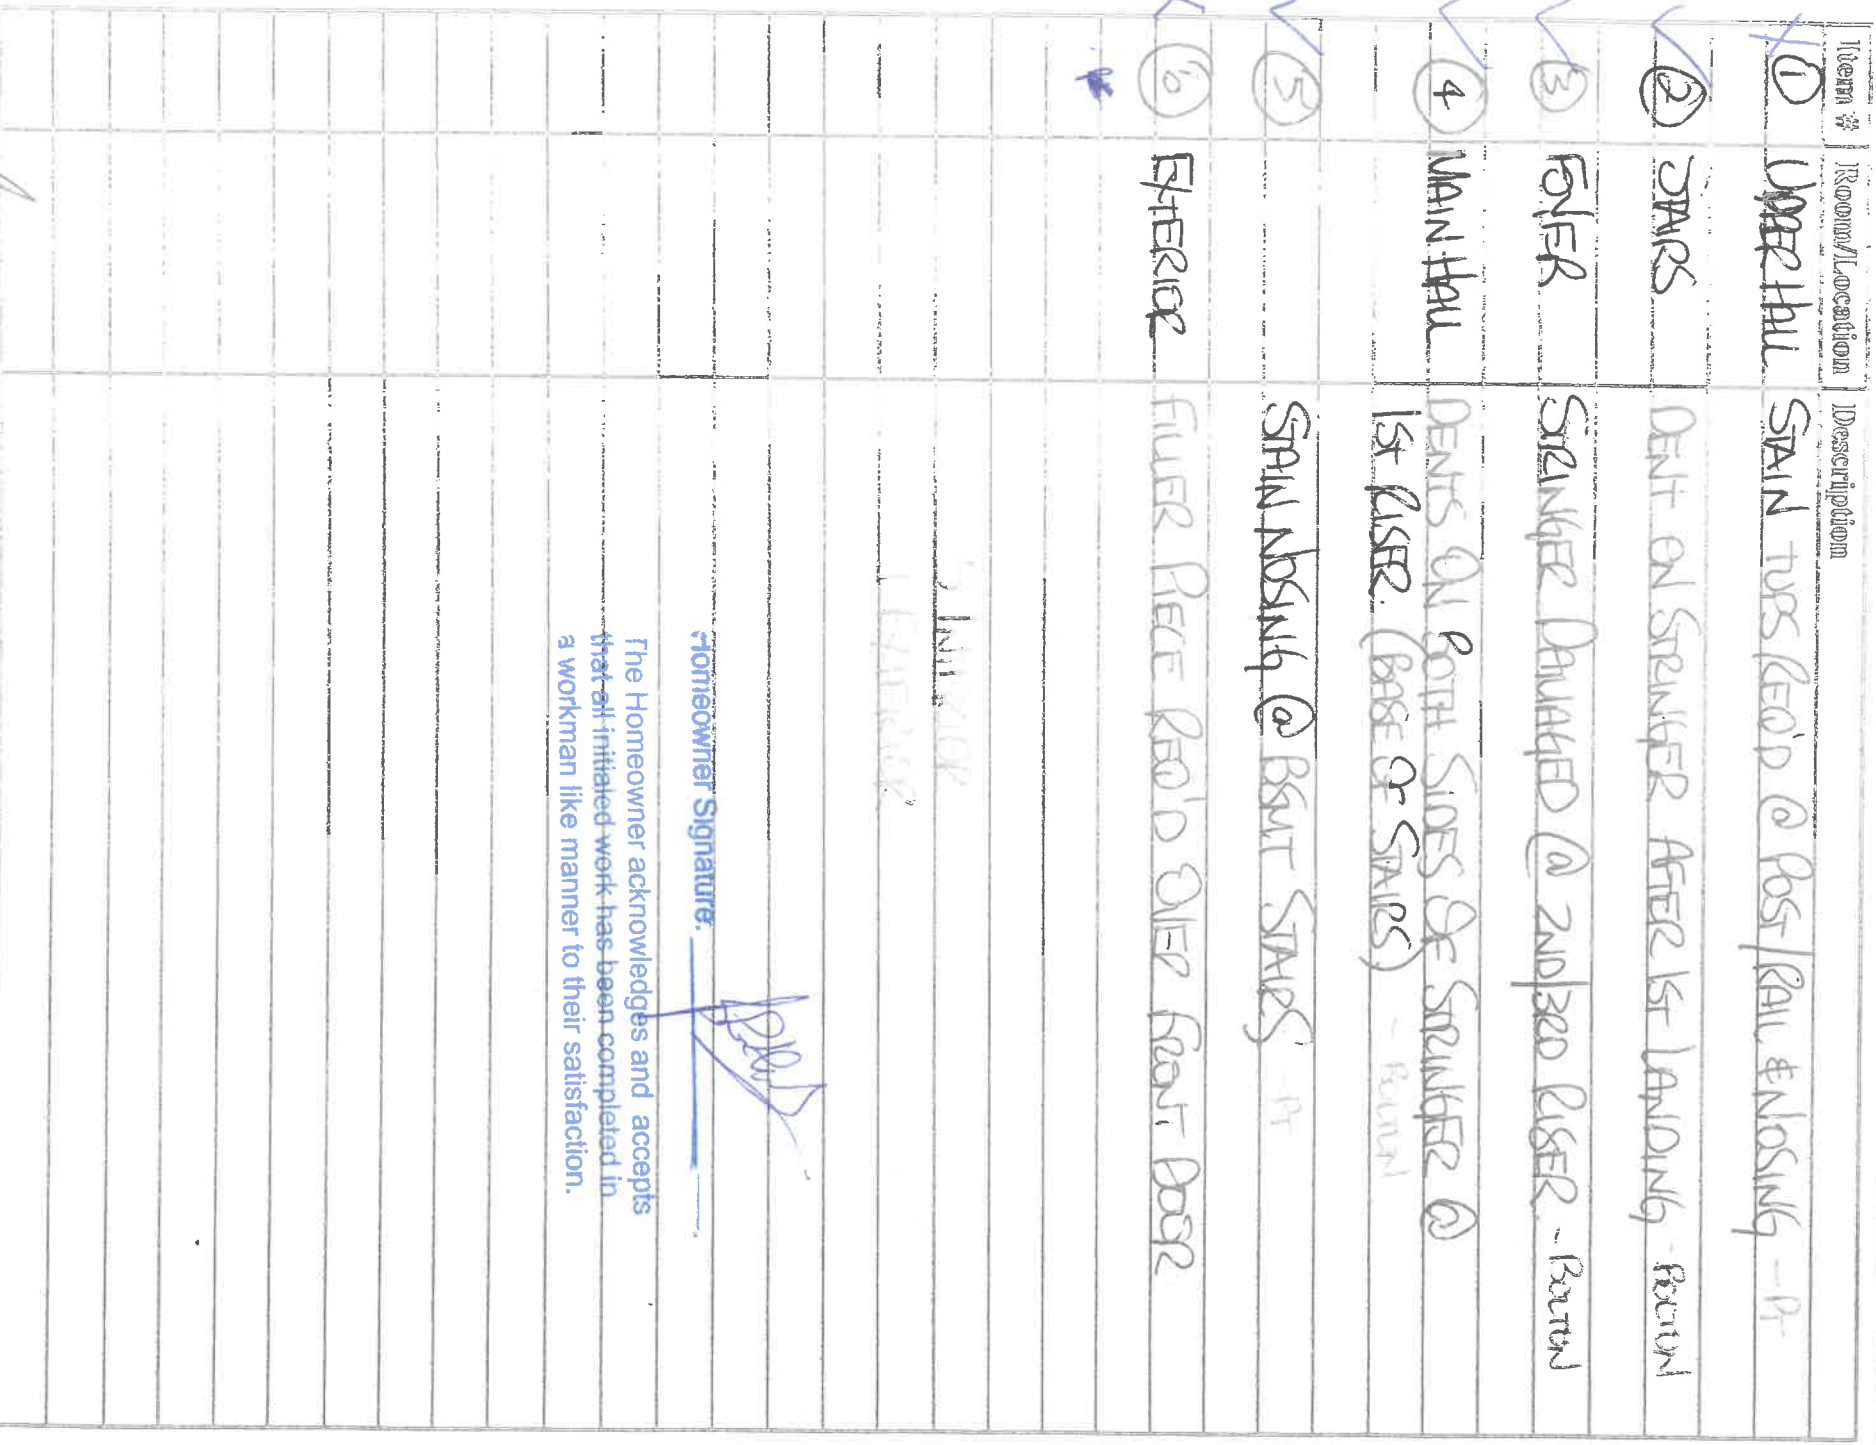 Item # Room/Location Description
① UPPER HALL STAIN TUPS REQ'D @ POST/RAIL & NOSING - PT
② STAIRS DENT ON STRINGER AFTER 1ST LANDING - BOLTON
③ FOYER STRINGER DAMAGED @ 2ND/3RD RISER - BOLTON
④ MAIN HALL DENTS ON BOTH SIDES OF STRINGER @
1ST RISER. (BASE OF STAIRS) - BOLTON
⑤ STAIN NOSING @ BSMT STAIRS - PT
⑥ EXTERIOR FILLER PIECE REQ'D OVER FRONT DOOR
5 INTERIOR
1 EXTERIOR
Homeowner Signature.
The Homeowner acknowledges and accepts
that all initialed work has been completed in
a workman like manner to their satisfaction.